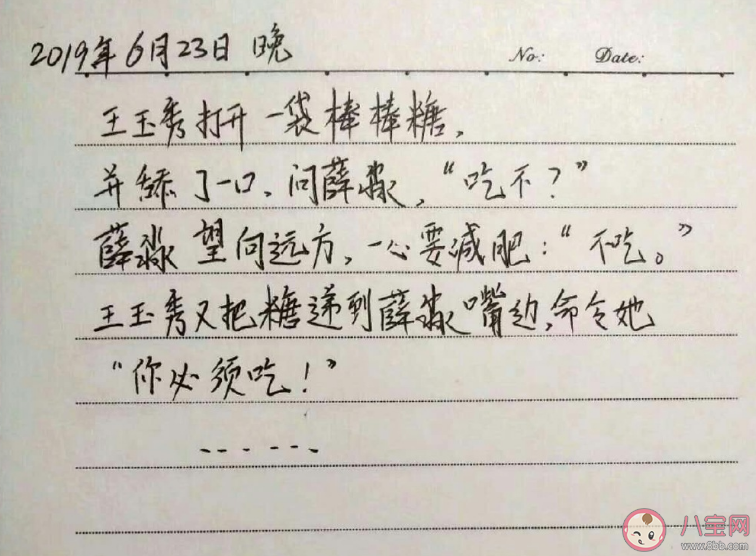 2019年6月23日 晚
No: Date:
王玉秀打开一袋棒棒糖,
并舔了一口,问薛淼,“吃不?”
薛淼望向远方,一心要减肥:“不吃。”
王玉秀又把糖递到薛淼嘴边,命令她
“你必须吃!”
......
八宝网
www.8bb.com